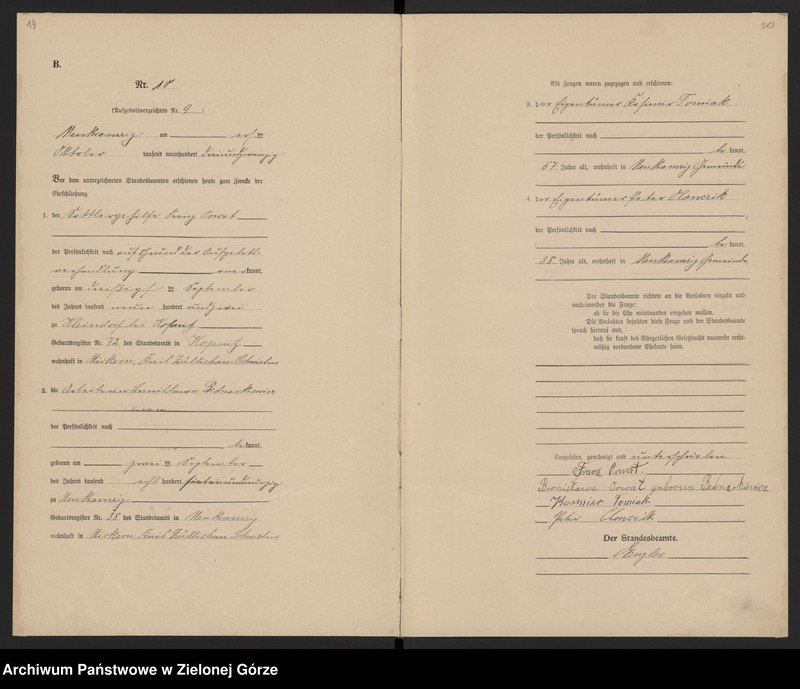 19
B.
Nr. 10
(Aufgebotsverzeichnis Nr. 9)
Neukramzig am elf ten
Oktober tausend neunhundert dreiundzwanzig
Vor dem unterzeichneten Standesbeamten erschienen heute zum Zwecke der
Eheschließung:
1. der Sattlergehilfe Franz Orwat
der Persönlichkeit nach auf Grund der Aufgebots-
verhandlung anerkannt,
geboren am dreißigsten September
des Jahres tausend neun hundert und zwei
zu Kleindorf bei Kopnitz
Geburtsregister Nr. 72 des Standesamts in Kopnitz
wohnhaft in Kreis Züllichau Schwiebus
2. die Arbeiterin Bednarkiewicz
der Persönlichkeit nach
be kannt,
geboren am zwei ten September
des Jahres tausend acht hundert
zu Neukramzig
Geburtsregister Nr. 38 des Standesamts in Neukramzig
wohnhaft in Kreis Züllichau Schwiebus
20
Als Zeugen waren zugezogen und erschienen:
3. der Eigentümer Tomiak
der Persönlichkeit nach
be kannt,
67 Jahre alt, wohnhaft in Neukramzig Gemeinde
4. der Eigentümer Peter
der Persönlichkeit nach
be kannt,
38 Jahre alt, wohnhaft in Neukramzig Gemeinde
Der Standesbeamte richtete an die Verlobten einzeln und
nacheinander die Frage:
ob sie die Ehe miteinander eingehen wollen.
Die Verlobten bejahten diese Frage und der Standesbeamte
sprach hierauf aus,
daß sie kraft des Bürgerlichen Gesetzbuchs nunmehr recht-
mäßig verbundene Eheleute seien.
Vorgelesen, genehmigt und unterschrieben
Franz Orwat.
Bronisława Orwat geboren Bednarkiewicz.
Kasmier Tomiak
Peter
Der Standesbeamte.
Engler
Archiwum Państwowe w Zielonej Górze